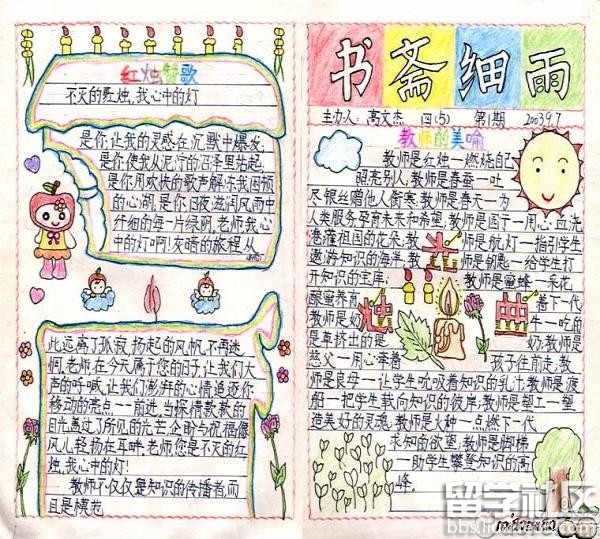 红烛颂歌
不灭的红烛,我心中的灯
是你,让我的灵感在沉默中爆发,
是你,使我从泥泞的沼泽里站起;
是你用欢快的歌声解冻我困顿
的心湖,是你日夜滋润风雨中
纤细的每一片绿阴,老师,我心
中的灯啊!灰暗的旅程从
此远离了孤寂,扬起的风帆,不再迷
惘,老师,在今天属于您的日子,让我们大
声的呼喊,让我们澎湃的心情追逐你
移动的亮点一一前进,当深情款款的
目光盖过了所见的光芒企盼与祝福像
风儿轻扬在耳畔,老师,您是不灭的红
烛,我心中的灯!
教师不仅仅是知识的传播者,而
且是模范
书斋细雨
主办人:高文杰 四(5) 第1期 2003.9.7
教师的美喻
教师是红烛一燃烧自己
照亮别人;教师是春蚕一吐
尽银丝赠他人御寒;教师是春天一为
人类服务,孕育未来和希望;教师是园丁一用心血浇
灌祖国的花朵;教师是航灯一指引学生
遨游知识的海洋;教师是钥匙一给学生打
开知识的宝库;教师是蜜蜂一采花
酿蜜养育着下一代
教师是奶牛一吃的
是草挤出的是奶;教师是
慈父一用心牵着孩子往前走;教
师是良母一让学生吮吸着知识的乳汁;教师是渡
船一把学生载向知识的彼岸;教师是塑工一塑
造美好的灵魂;教师是火种一点燃下一代
求知的欲望;教师是脚梯
一助学生攀登知识的高
峰。
红烛
留学社区